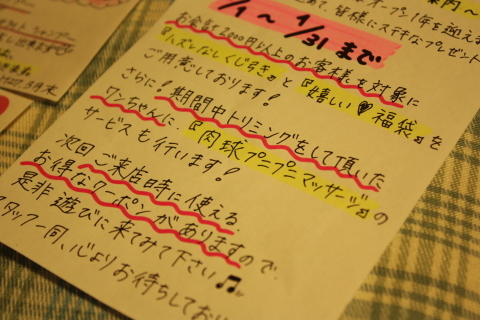 オープン1年を迎える
て、皆様にステキなプレゼント
1/1 〜 1/31 まで
お会計2000円以上のお客様を対象に
『ハズレなしくじ引き』と『嬉しい♥福袋』を
ご用意しております!
さらに!期間中トリミングをして頂いた
ワンちゃんに、『肉球プニプニマッサージ』の
サービスも行います!
次回ご来店時に使える
お得なクーポンがありますので、
是非遊びに来てみて下さい♫
スタッフ一同、心よりお待ちしており